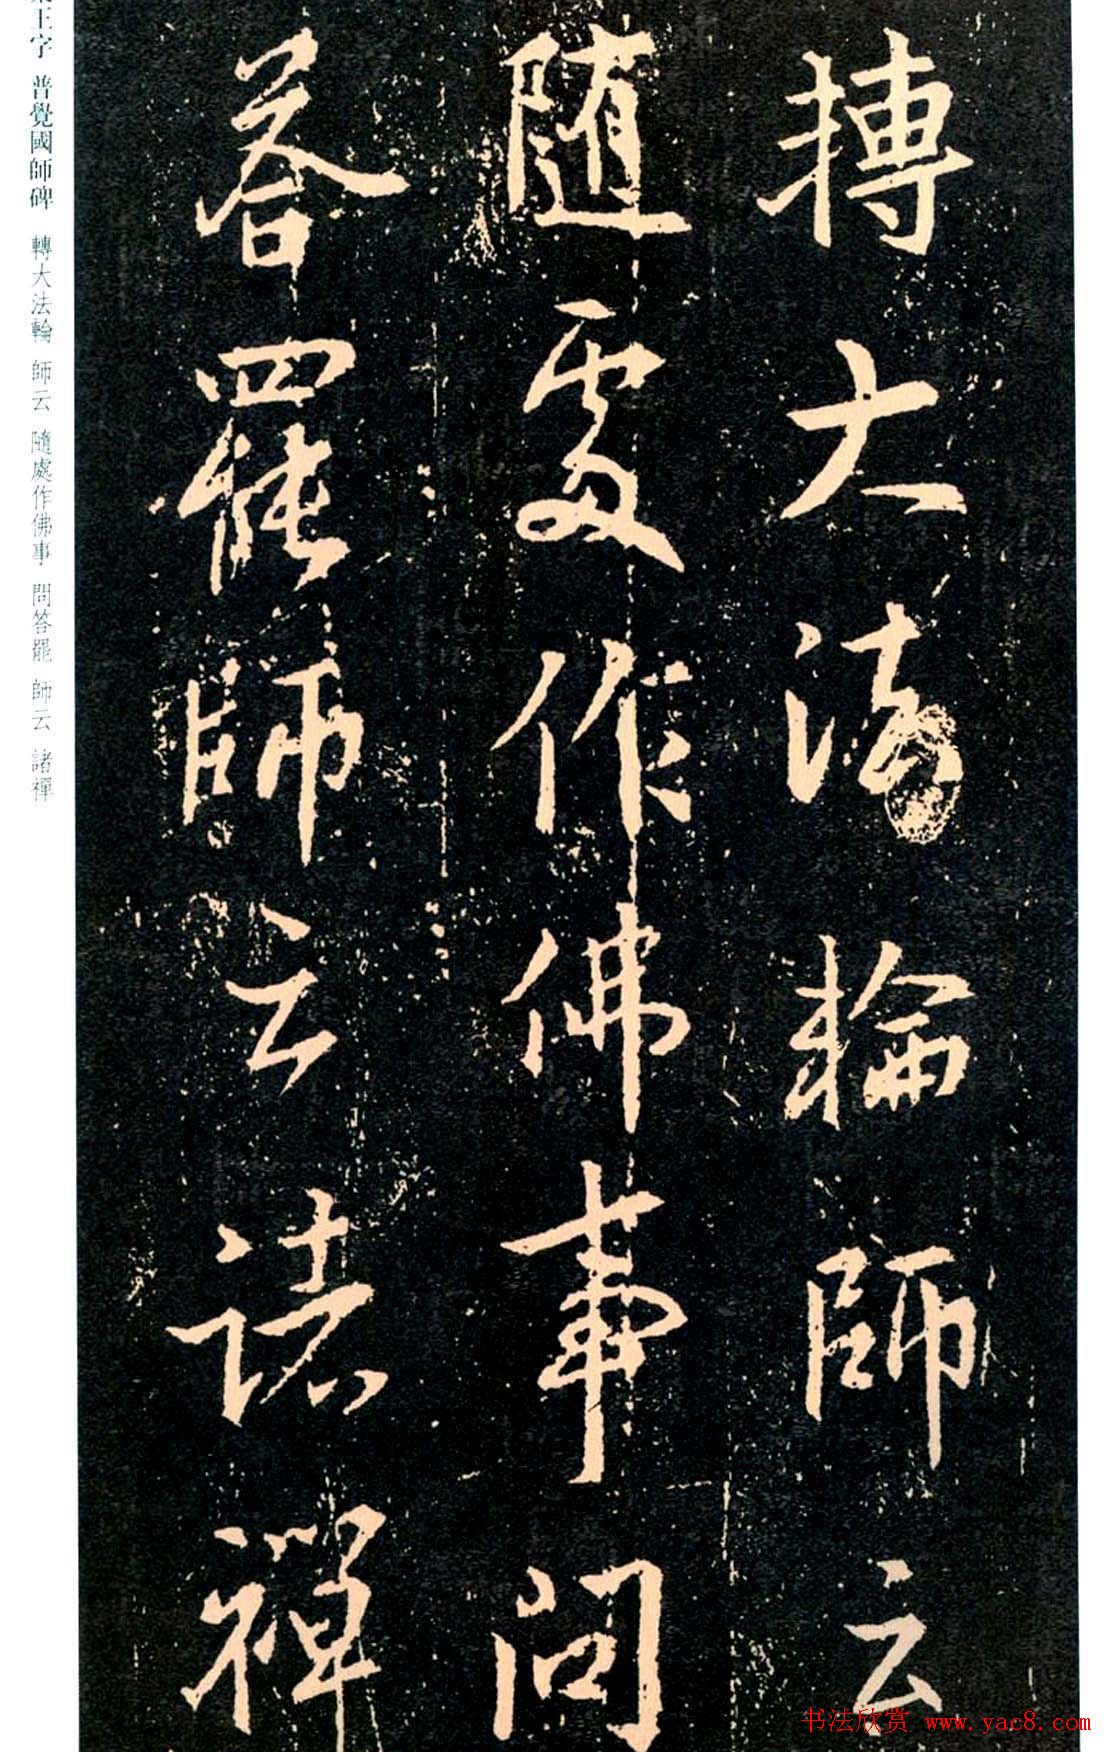 轉大法輪師云
隨處作佛事問
答罷師云諸禪
王字 普覺國師碑 轉大法輪 師云 隨處作佛事 問答罷 師云 諸禪
书法欣赏 www.yac8.com